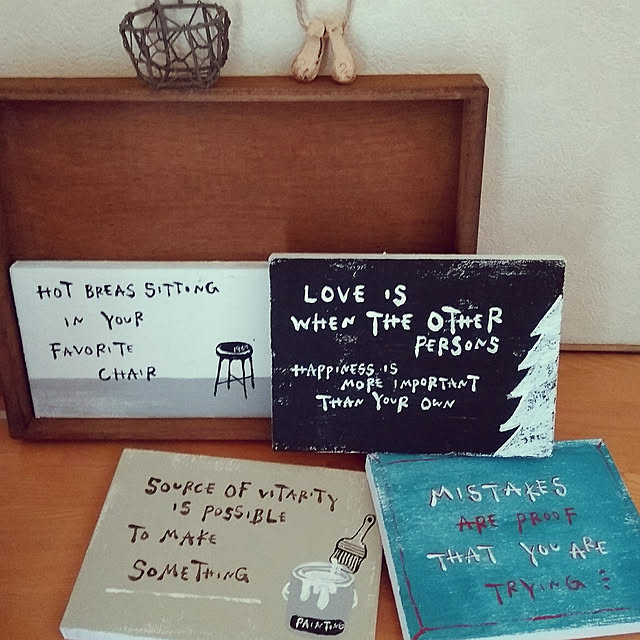 HOT BREAS SITTING
IN YOUR
FAVORITE
CHAIR
LOVE IS
WHEN THE OTHER
PERSONS
HAPPINESS IS
MORE IMPORTANT
THAN YOUR OWN
SOURCE OF VITARITY
IS POSSIBLE
TO MAKE
SOMETHING
PAINTING
MISTAKES
ARE PROOF
THAT YOU ARE
TRYING